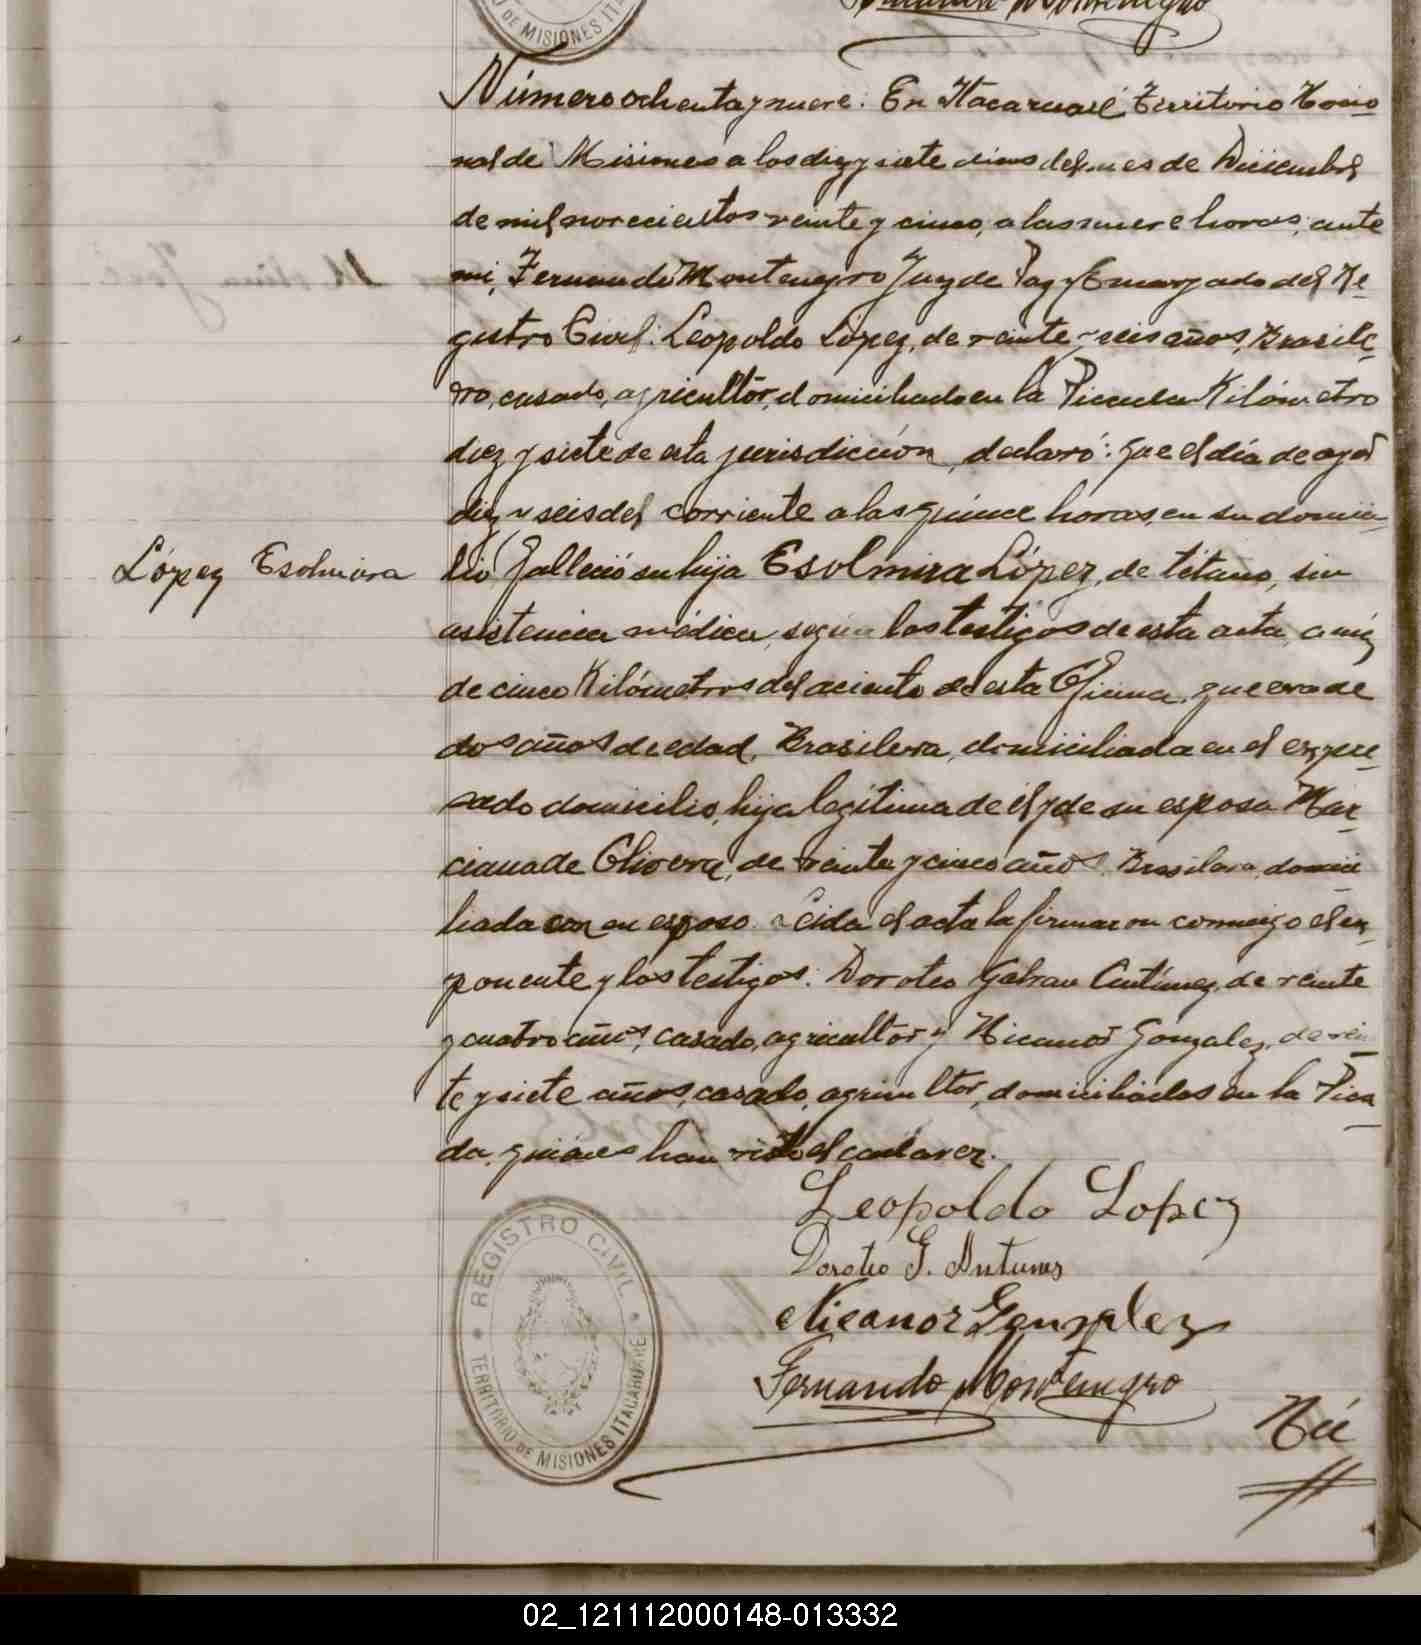 DE MISIONES ITA
Fernando Montenegro
Número ochenta y nueve: En Itacaruaré Territorio Nacio-
nal de Misiones a los diez y siete dias del mes de Diciembre
de mil novecientos veinte y cinco, a las nueve horas, ante
mi, Fernando Montenegro Juez de Paz y Encargado del Re-
gistro Civil: Leopoldo López, de veinte y seis años, Brasile-
ro, casado, agricultor, domiciliado en la Picada Kilómetro
diez y siete de esta jurisdicción, declaró: que el día de ayer
diez y seis del corriente a las quince horas, en su domici-
lio falleció su hija Esolmira López, de tétano, sin
asistencia médica, según los testigos de esta acta, a más
de cinco Kilómetros del aciento de esta Oficina, que era de
dos años de edad, Brasilera, domiciliada en el expre-
sado domicilio, hija legítima de él y de su esposa Mar-
ciana de Olivera, de veinte y cinco años, Brasilera, domici
liada con su esposo. Leida el acta la firmaron conmigo el ex-
ponente y los testigos: Doroteo Galvan Antúnez, de veinte
y cuatro años, casado, agricultor y Nicanor Gonzalez, de vein
te y siete años, casado, agricultor, domiciliados en la Pica
da, quiénes han visto el cadaver.
López Esolmira
Leopoldo Lopez
Doroteo G. Antunes
Nicanor Gonzalez
Fernando Montenegro
REGISTRO CIVIL
TERRITORIO DE MISIONES ITACARUARE
Nú
02_121112000148-013332